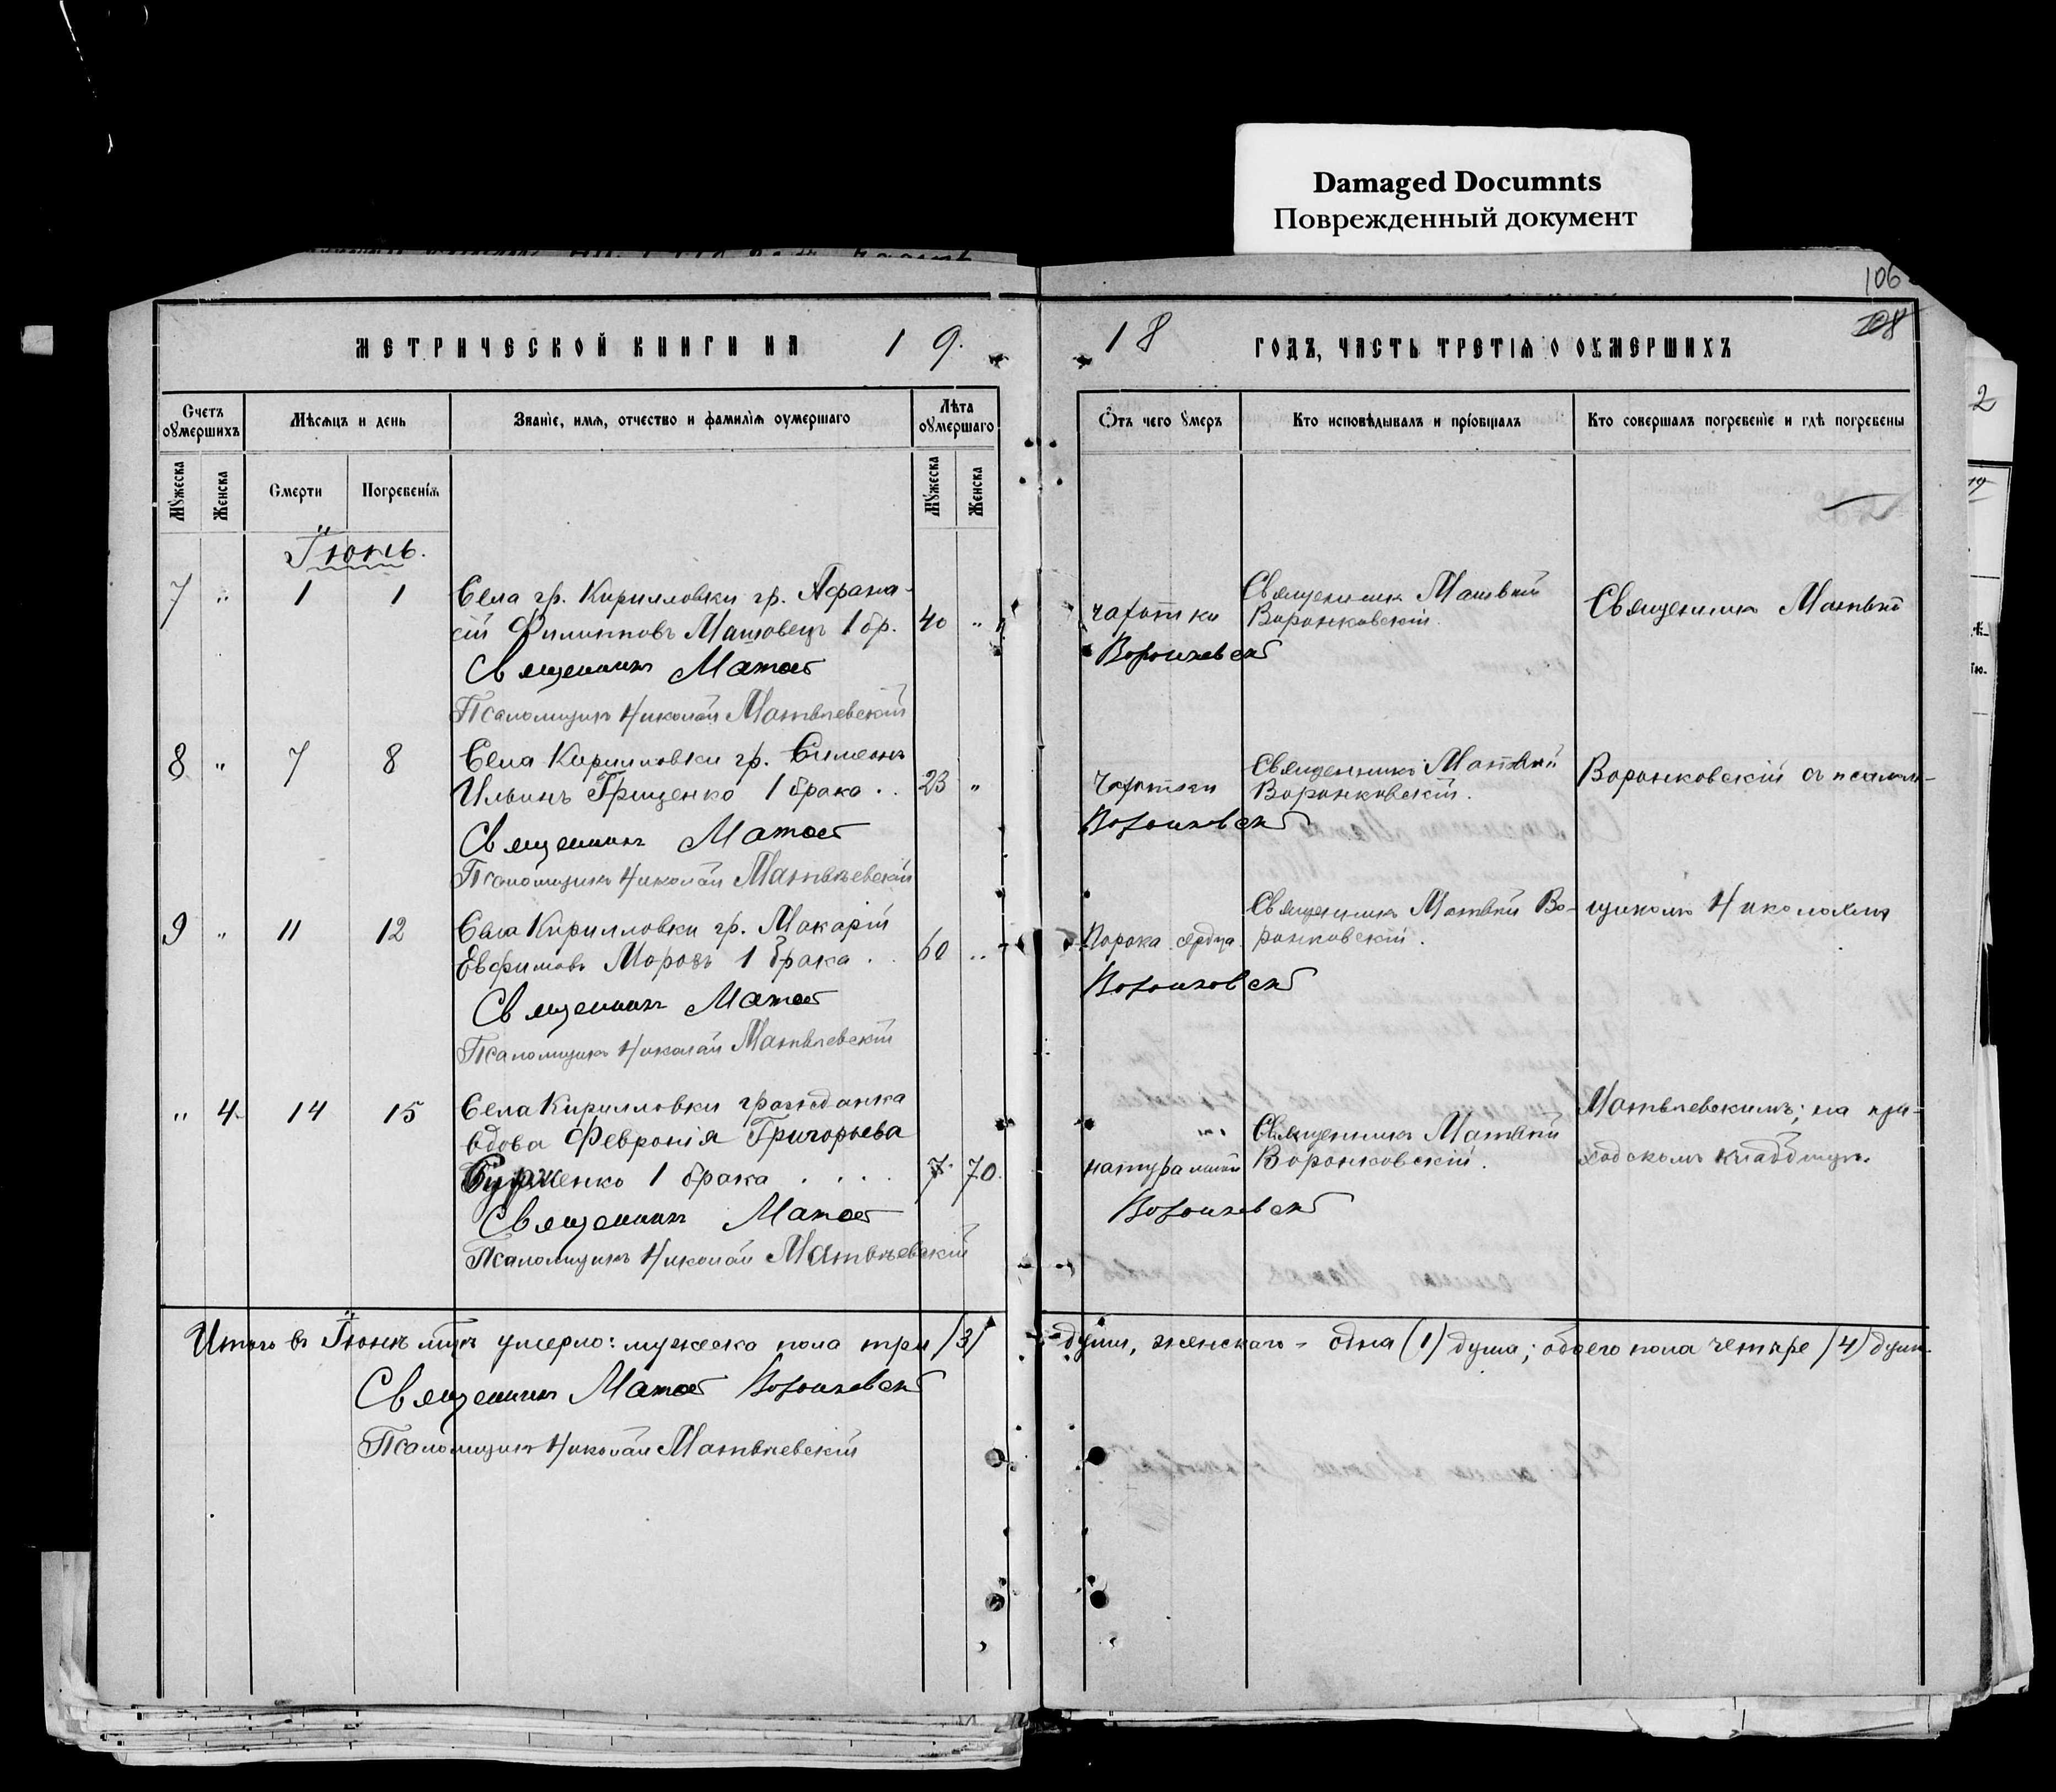 Damaged Documnts
Поврежденный документ
106
108
МЕТРИЧЕСКОЙ КНИГИ НА 19.
18 ГОДЪ, ЧАСТЬ ТРЕТІЯ О ОУМЕРШИХЪ
Счетъ оумершихъ
Мѣсяцъ и день
Званіе, имя, отчество и фамилія оумершаго
Лѣта оумершаго
Отъ чего умеръ
Кто исповѣдывалъ и пріобщалъ
Кто совершалъ погребеніе и гдѣ погребены
Мужеска
Женска
Смерти
Погребенія
Мужеска
Женска
Іюнь.
7 " 1 1 Села гр. Кирилловки гр. Афана-
сій Филипповъ Матовецъ 1 бр. 40 "
чахотки
Священникъ Матвѣй
Воронковскій.
Священникъ Матвѣй
Священникъ Матвей Воронковскій
Псаломщикъ Николай Матвѣевскій
8 " 7 8 Села Кирилловки гр. Симеонъ
Ильинъ Грищенко 1 брака . . 23 "
Чахотки
Священникъ Матвѣй
Воронковскій.
Воронковскій съ псалом-
Священникъ Матвей Воронковскій
Псаломщикъ Николай Матвѣевскій
9 " 11 12 Села Кирилловки гр. Макарій
Евфимовъ Морозъ 1 брака . . 60 "
Порока сердца
Священникъ Матвѣй Во-
ронковскій.
щикомъ Николаемъ
Священникъ Матвей Воронковскій
Псаломщикъ Николай Матвѣевскій
" 4 14 15 Села Кирилловки гражданка
вдова Февронія Григорьева
1 брака . . . . 70.
Священникъ Матвѣй
Воронковскій.
Матвѣевскимъ; на при-
ходскомъ кладбищѣ.
Священникъ Матвей Воронковскій
Псаломщикъ Николай Матвѣевскій
Итого въ Іюнѣ м-цѣ умерло: мужеска пола три (3) души, женскаго - одна (1) душа; обоего пола четыре (4) души.
Священникъ Матвей Воронковскій
Псаломщикъ Николай Матвѣевскій
2